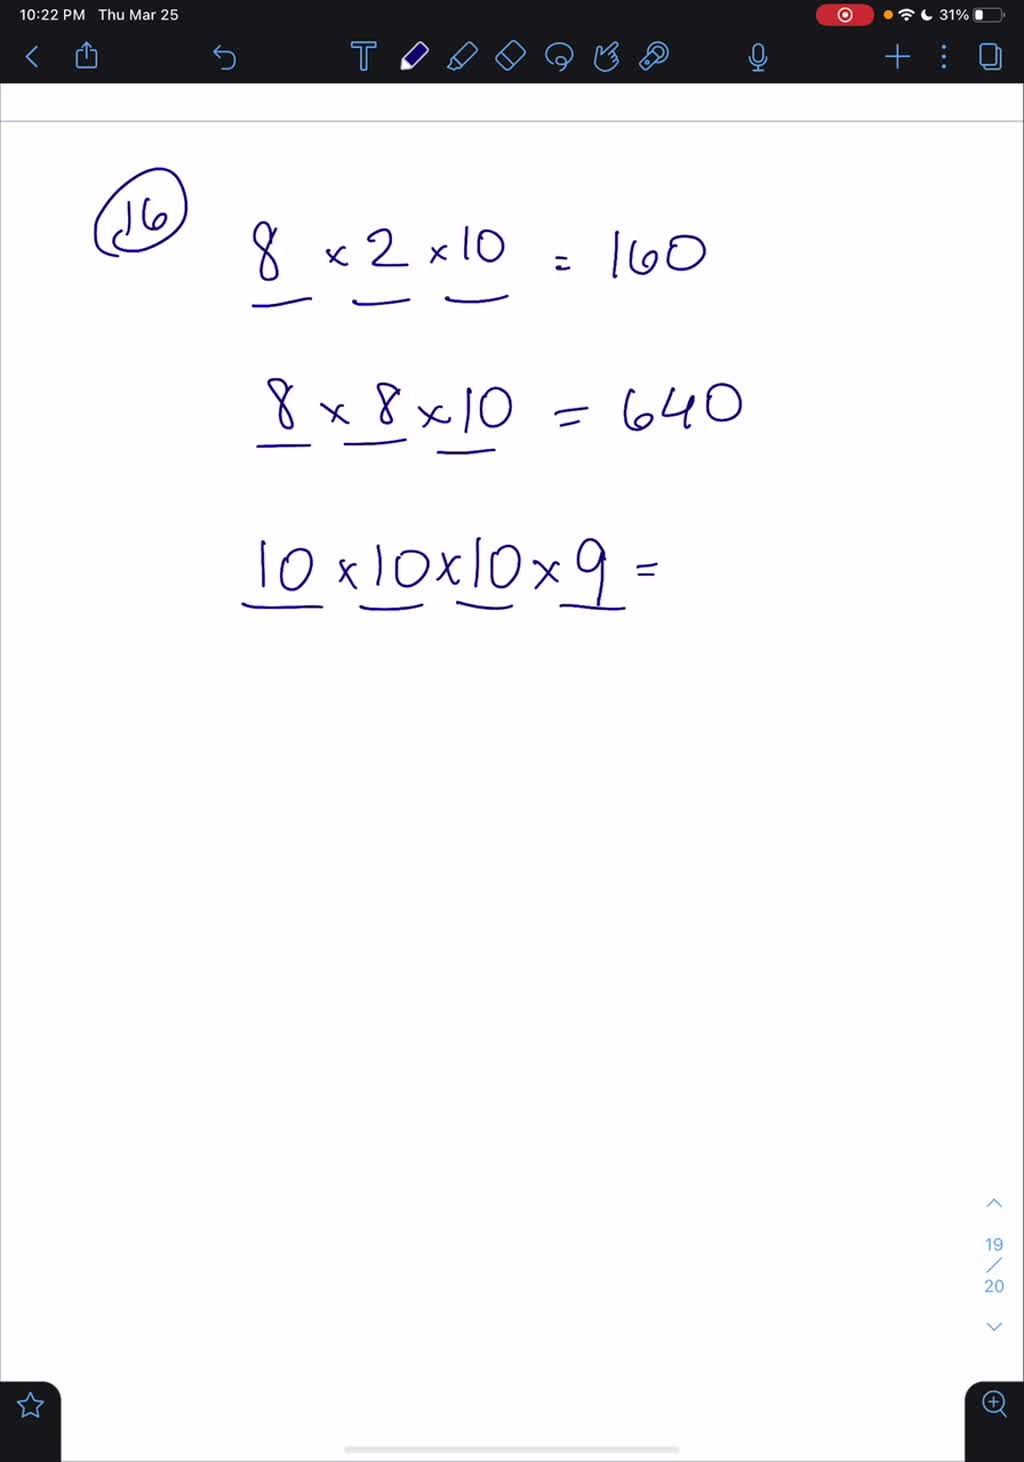 10:22 PM Thu Mar 25
31%
T
16
8 × 2 × 10 = 160
8 × 8 × 10 = 640
10 × 10 × 10 × 9 =
19
/
20